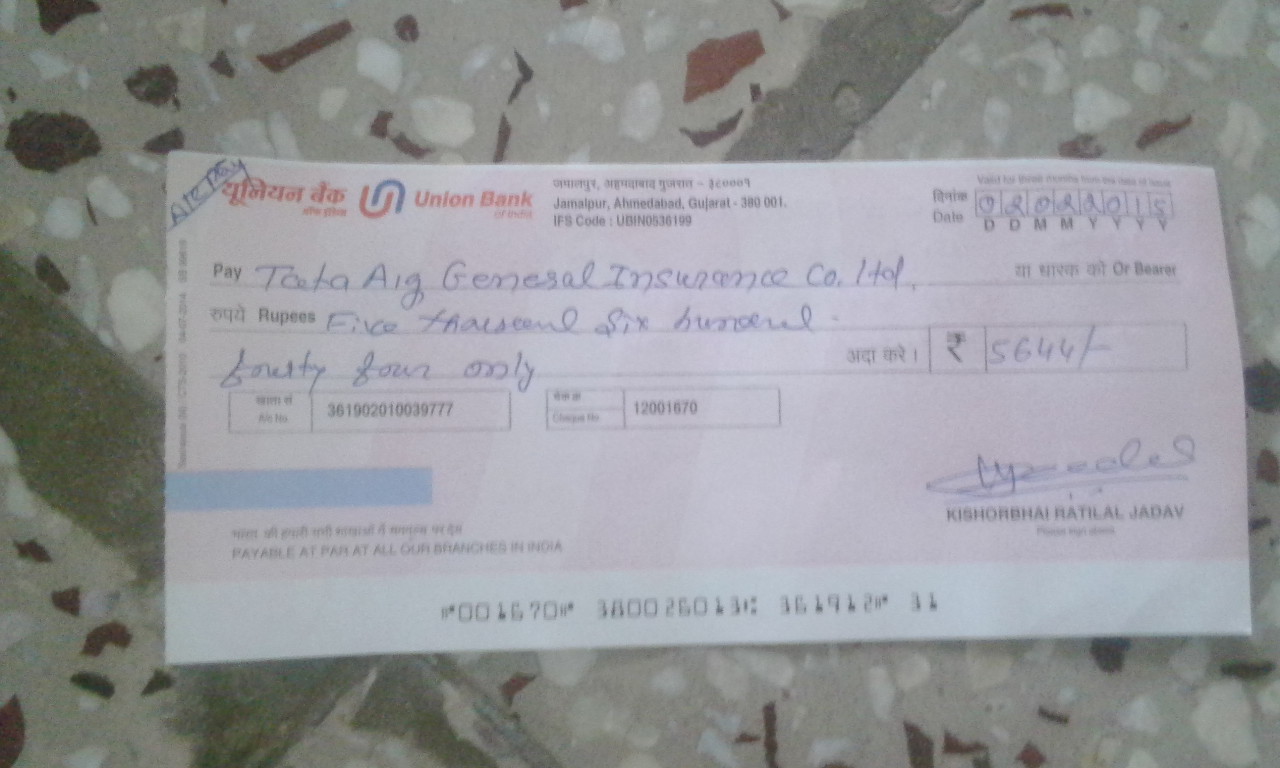 A/c Pay
यूनियन बैंक Union Bank
ऑफ इंडिया of India
जमालपुर, अहमदाबाद गुजरात - ३८०००१
Jamalpur, Ahmedabad, Gujarat - 380 001.
IFS Code : UBIN0536199
Valid for three months from the date of issue
दिनांक Date 02022015
D D M M Y Y Y Y
Pay Tata Aig General Insurance Co. ltd. या धारक को Or Bearer
रुपये Rupees Five thousand Six hundred
fourty four only अदा करे । ₹ 5644/-
खाता सं A/c No. 361902010039777
चेक क्र Cheque No 12001670
KISHORBHAI RATILAL JADAV
Please sign above
PAYABLE AT PAR AT ALL OUR BRANCHES IN INDIA
⑈001670⑈ 380026013⑆ 361912⑈ 31